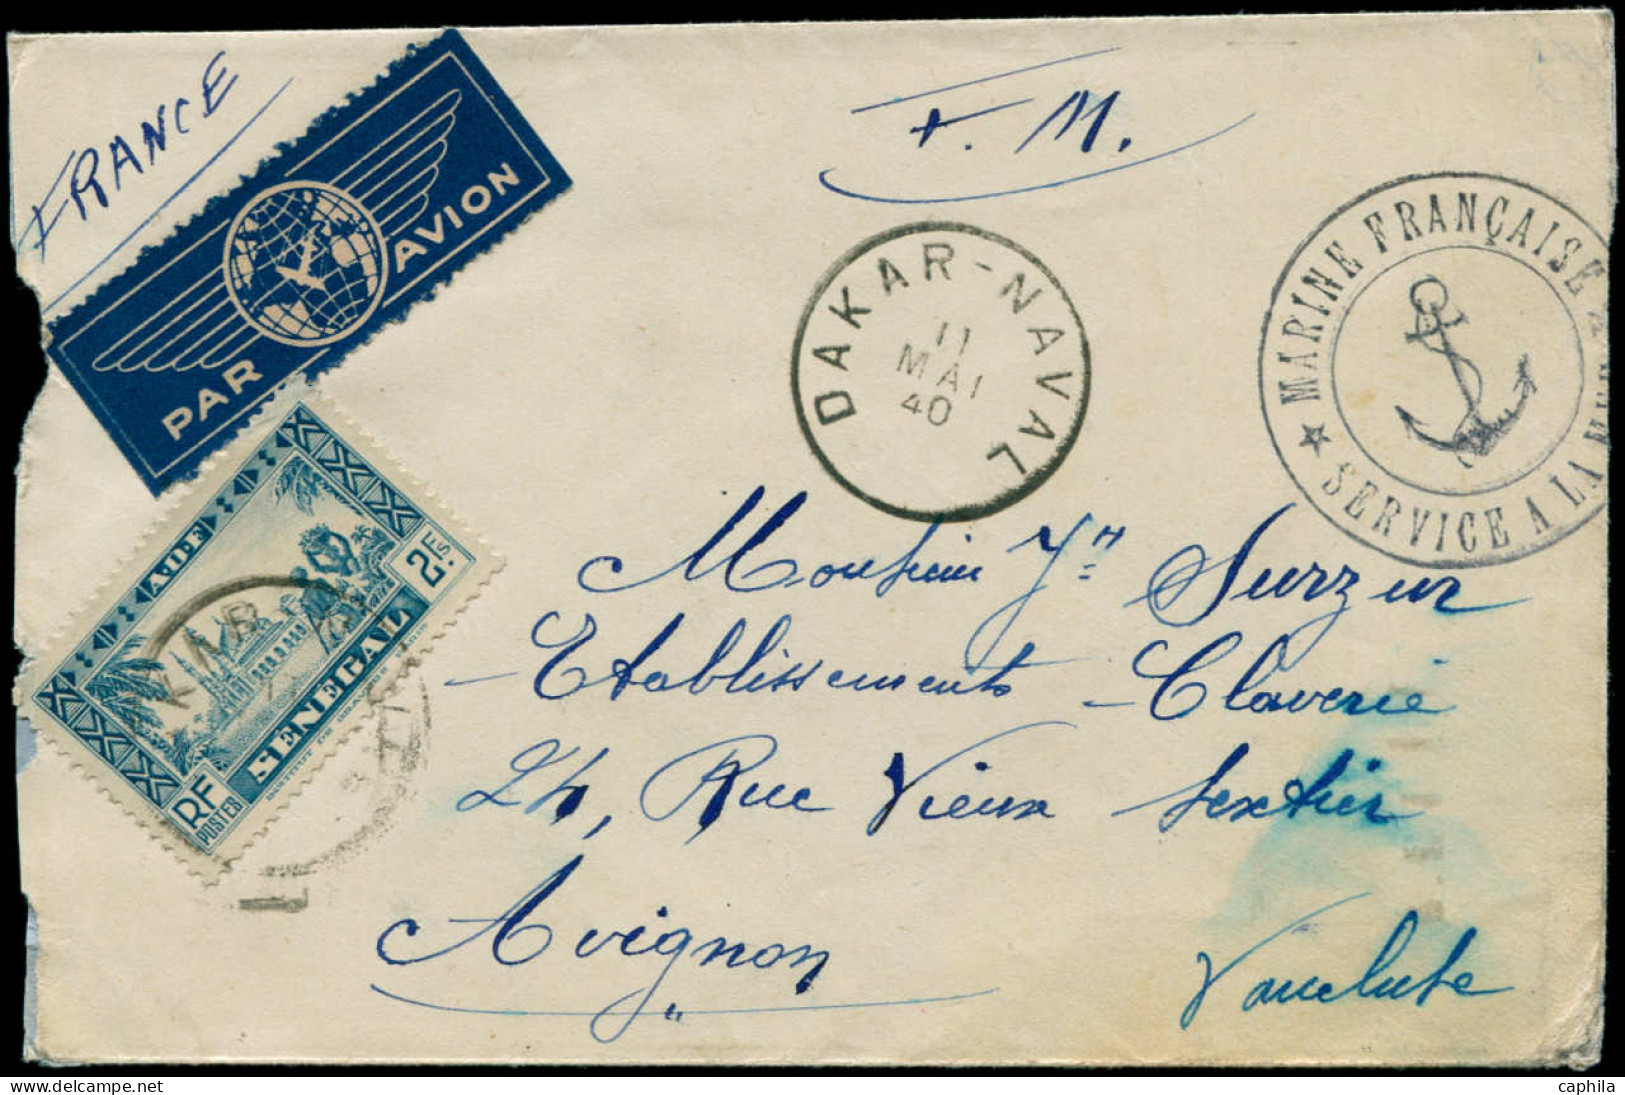 FRANCE
PAR AVION
F. M.
DAKAR-NAVAL
11
MAI
40
MARINE FRANÇAISE
★ SERVICE A LA
2F
SENEGAL
RF
POSTES
KAR
Monsieur Jh Surzur
-Etablissements-Claverie
24, Rue Vieux Sextier
Avignon
Vaucluse
caphila